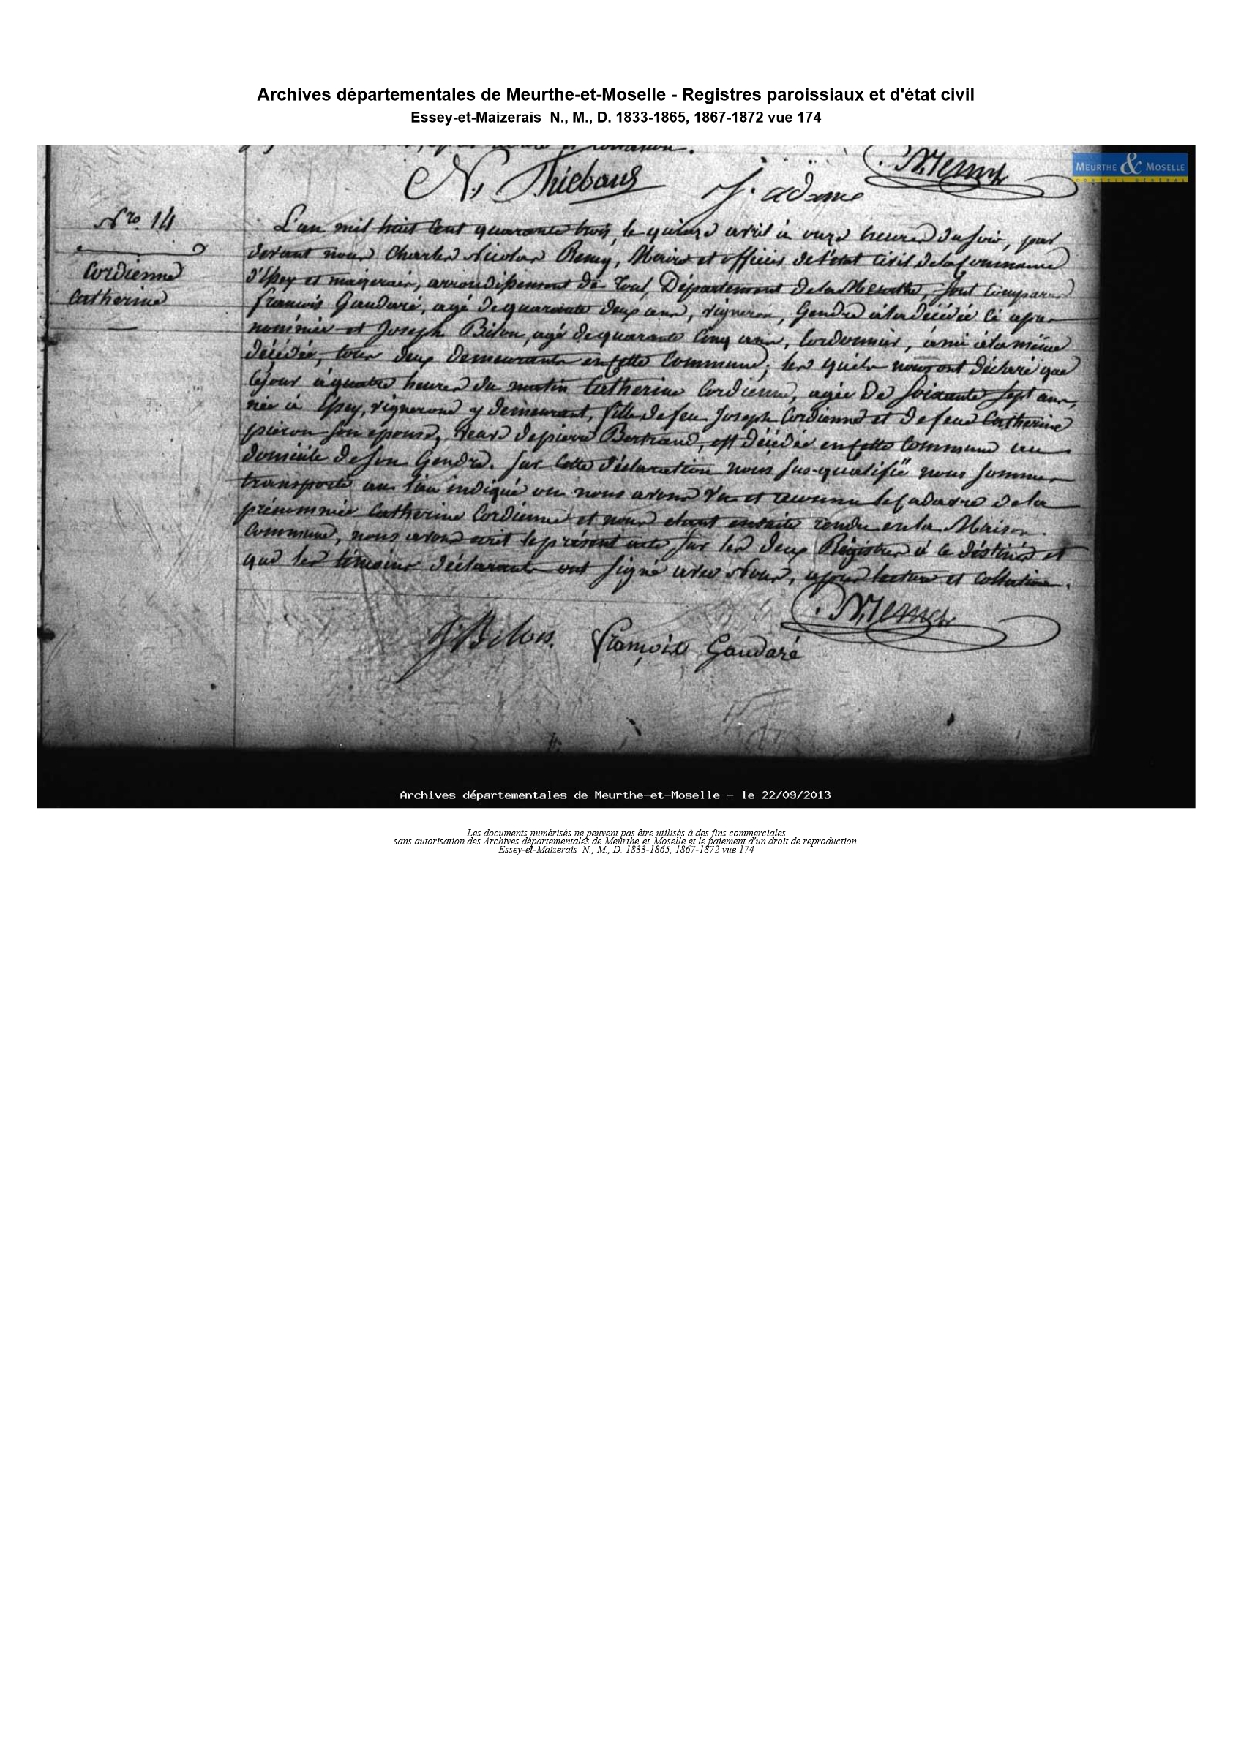 Archives départementales de Meurthe-et-Moselle - Registres paroissiaux et d'état civil
Essey-et-Maizerais N., M., D. 1833-1865, 1867-1872 vue 174
MEURTHE & MOSELLE
CONSEIL GÉNÉRAL
N. Thiebaut J. adame
Nro 14
Cordienne
Catherine
L'an mil huit cent quarante trois, le quinze avril à onze heures du soir, par
devant nous Charles Nicolas Remy, Maire et officier de l'état civil de la Commune
d'Essey et maizerais, arrondissement de Toul, Département de la Meurthe, sont comparus
françois Gaudaré, agé de quarante deux ans, vigneron, Gendre à la décédée ci après
nommée et Joseph Bilon, agé de quarante cinq ans, Cordonnier, ami à la même
décédée, tous deux demeurants en cette Commune, les quels nous ont déclaré que
cejour à quatre heures du matin Catherine Cordienne, agée De Soixante sept ans,
née à Essey, vigneronne y demeurant, fille de feu Joseph Cordienne et de feue Catherine
pieron son epouse, veuve de pierre Bertrand, est décédée en cette Commune au
domicile de son Gendre. Sur cette déclaration nous sus-qualifié nous sommes
transporté au lieu indiqué ou nous avons vu et reconnu le cadavre de la
prénommée Catherine Cordienne et nous etant ensuite rendu en la Maison
Commune, nous avons ecrit le présent acte sur les deux Régistres à ce destinés et
que les témoins déclarants ont signé avec Nous, après lecture et collation.
J Bilon. françois Gaudaré
Archives départementales de Meurthe-et-Moselle - le 22/09/2013
Les documents numérisés ne peuvent pas être utilisés à des fins commerciales
sans autorisation des Archives départementales de Meurthe et Moselle et le paiement d'un droit de reproduction
Essey-et-Maizerais N., M., D. 1833-1865, 1867-1872 vue 174